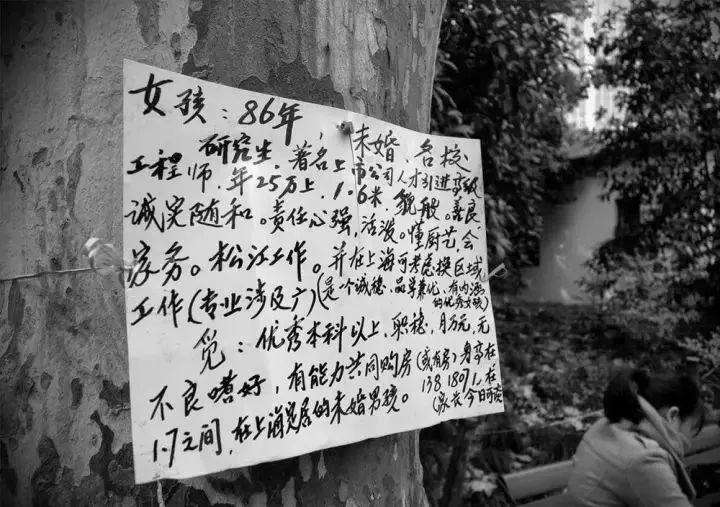 女孩：86年，未婚、名校
研究生，著名上市公司人才引进高级
工程师，年25万上，1.6米，貌般。善良
诚实随和。责任心强，活泼。懂厨艺，会
家务。松江工作。并在上海可考虑换区域
工作（专业涉及广）（是一个诚稳、品学兼优、有内涵
的优秀女孩）
觅：优秀本科以上，职稳，月万元，无
不良嗜好，有能力共同购房（或有房）身高在
1.7之间，在上海定居的未婚男孩。
138 1807
（家长今日可谈